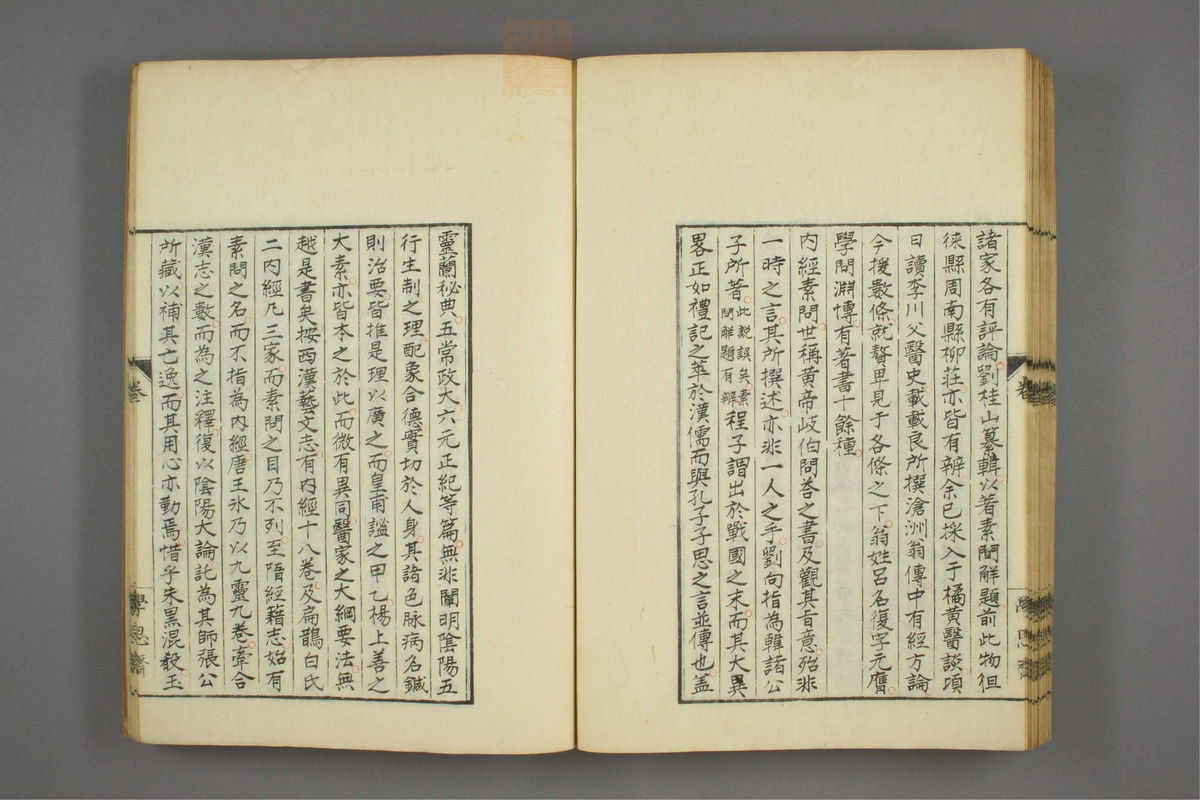 諸家各有評論劉桂山纂輯以著素問解題前此物徂
徠縣周南縣柳莊亦皆有辨余已採入于橘黄醫談頃
日讀李川父醫史載載良所撰滄洲翁傳中有經方論
今援數條就贅卑見于各條之下翁姓呂名復字元膺
學問淵博有著書十餘種
內經素問世稱黄帝岐伯問荅之書及觀其旨意殆非
一時之言其所撰述亦非一人之手劉向指為韓諸公
子所著此說誤矣素問解題有辨程子謂出於戰國之末而其大
畧正如禮記之萃於漢儒而與孔子子思之言並傳也盖
靈蘭秘典五常政大六元正紀等篇無非闡明陰陽五
行生制之理配象合德實切於人身其諸色脉病名鍼
則治要皆推是理以廣之而皇甫謐之甲乙楊上善之
大素亦皆本之於此而微有異同醫家之大綱要法無
越是書矣按西漢藝文志有內經十八卷及扁鵲白氏
二內經凡三家而素問之目乃不列至隋經籍志始有
素問之名而不指為內經唐王冰乃以九靈九卷牽合
漢志之數而為之注釋復以陰陽大論託為其師張公
所藏以補其亡逸而其用心亦勤焉惜乎朱黑混殽玉
卷